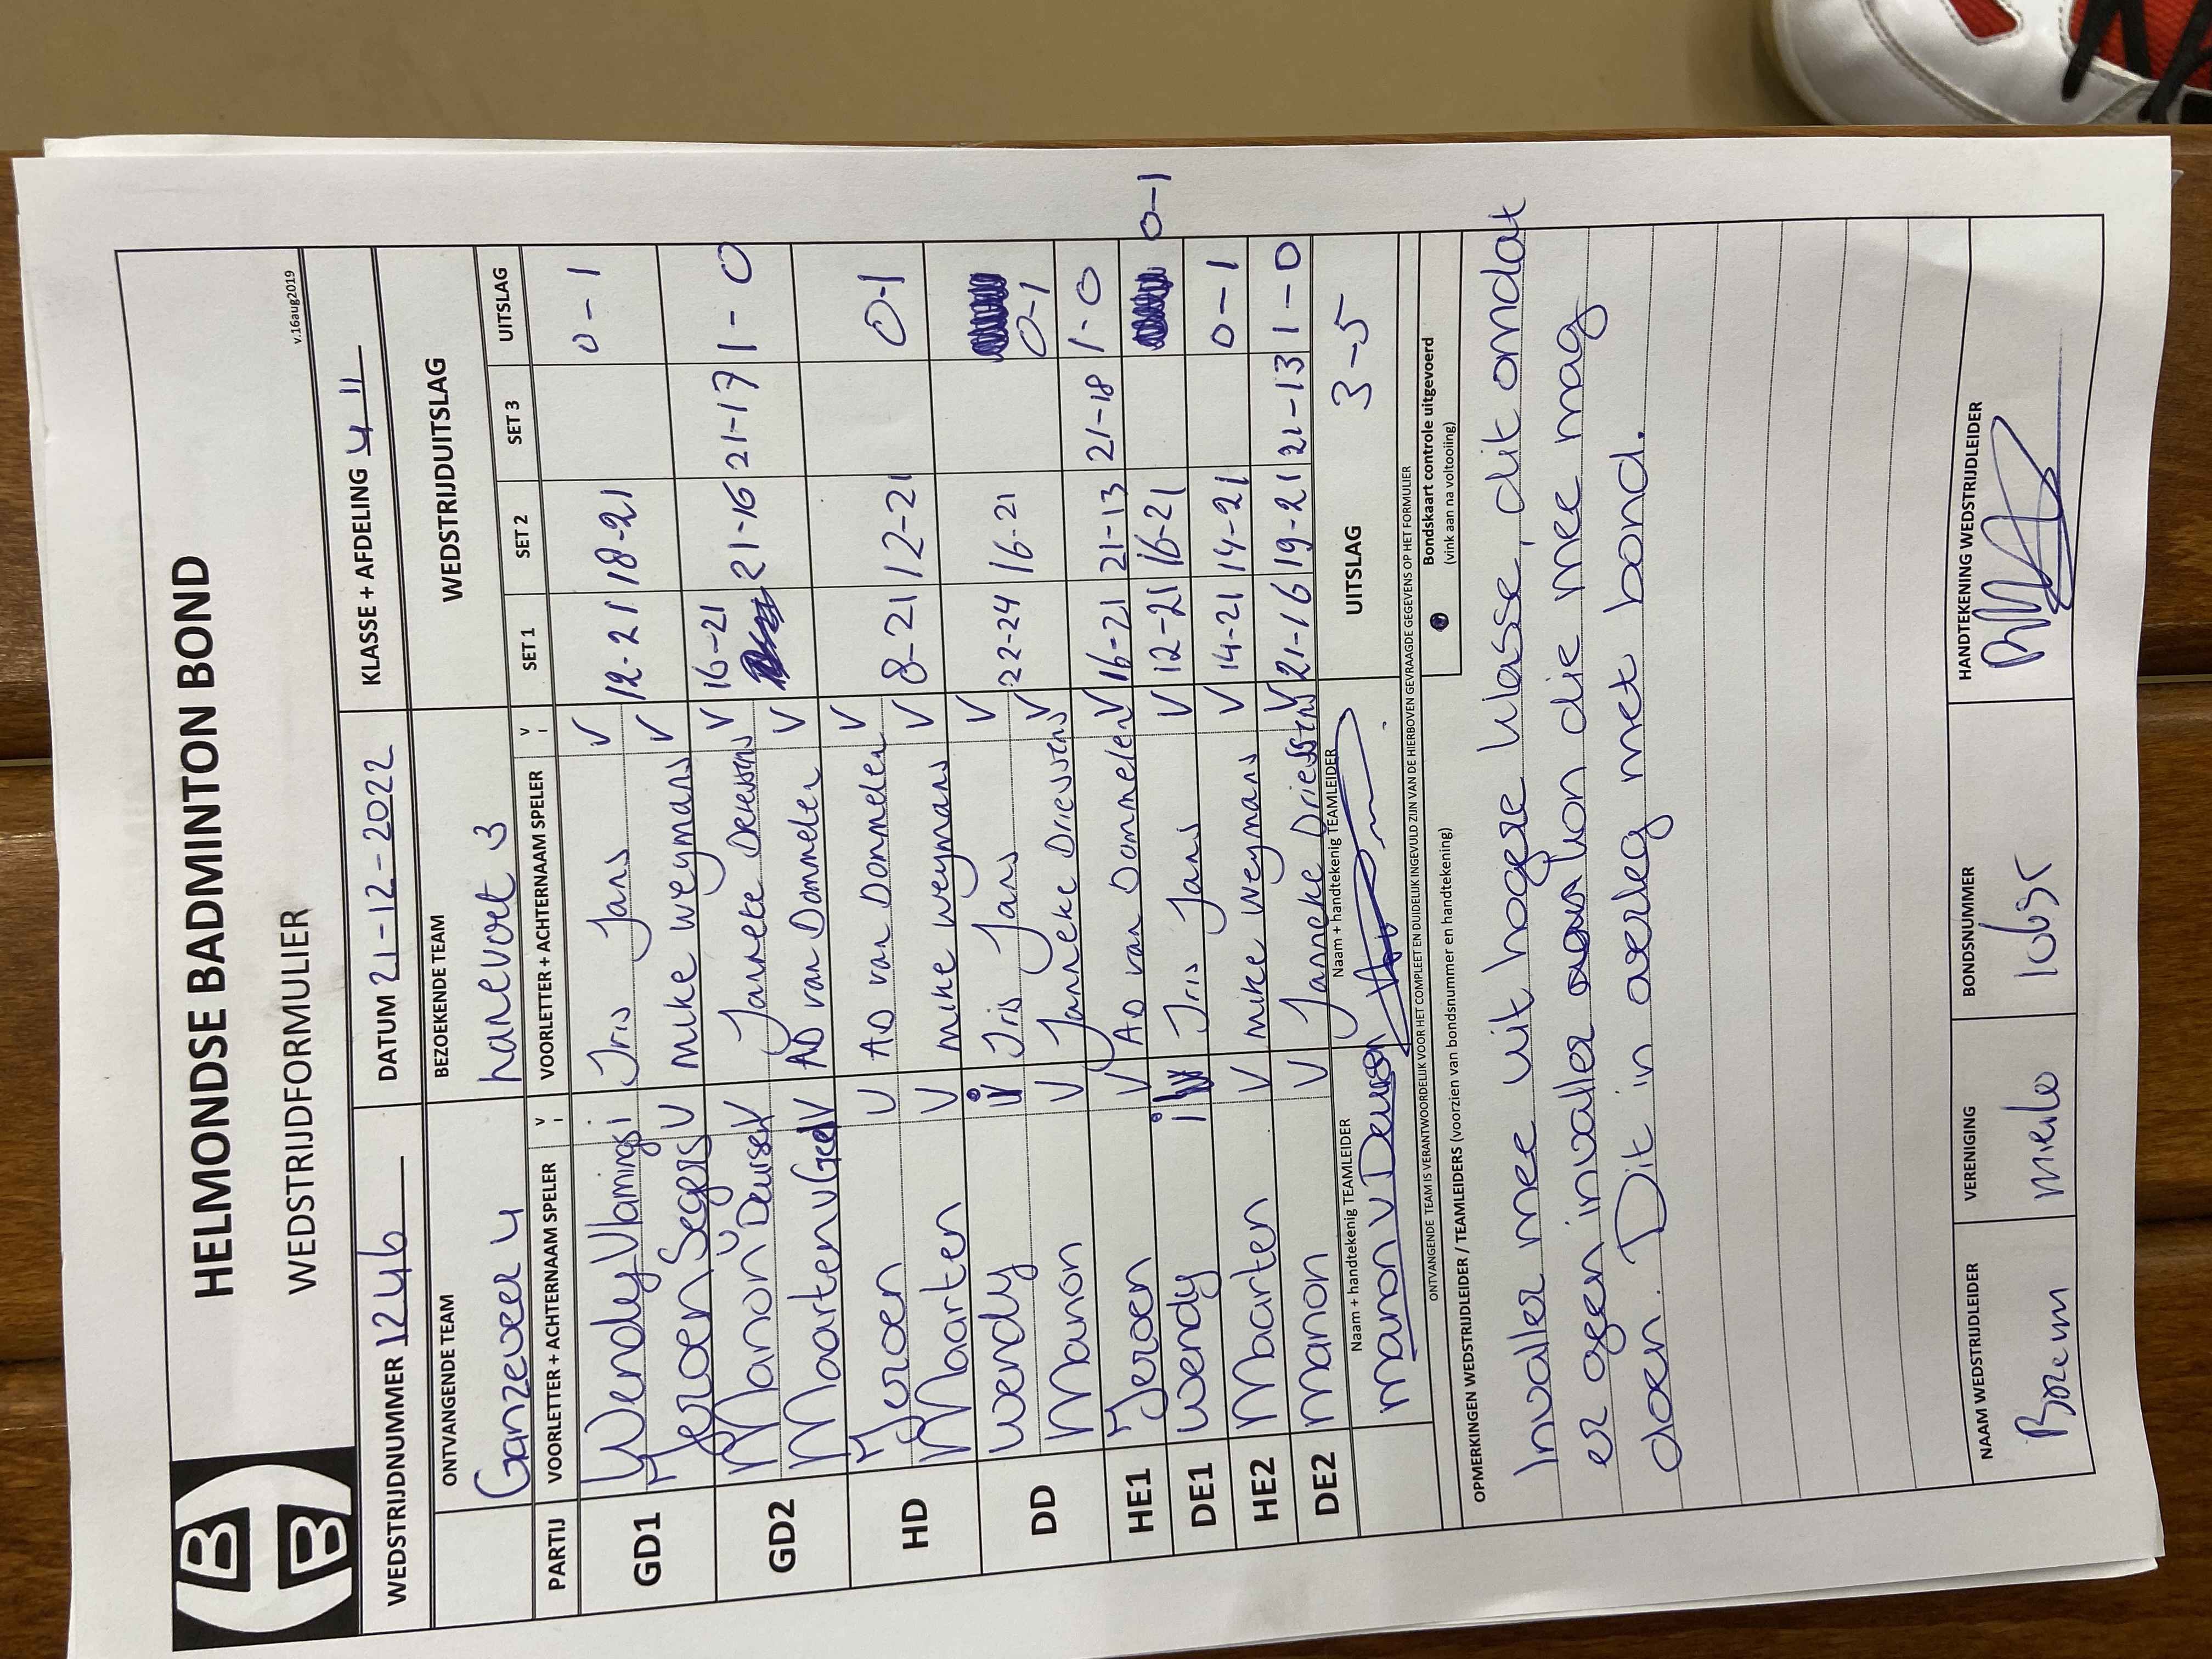 HELMONDSE BADMINTON BOND
WEDSTRIJDFORMULIER
v.16aug2019
WEDSTRIJDNUMMER 1246 DATUM 21-12-2022 KLASSE + AFDELING 4 11
ONTVANGENDE TEAM BEZOEKENDE TEAM WEDSTRIJDUITSLAG
Ganzeveer 4 hanevoet 3
PARTIJ VOORLETTER + ACHTERNAAM SPELER V I VOORLETTER + ACHTERNAAM SPELER V I SET 1 SET 2 SET 3 UITSLAG
GD1 Wendy Vlamings i Iris Jans V 12-21 18-21 0-1
Jeroen Segers V mike weymans V
GD2 Manon v Deursen V Janneke Driessens V 16-21 21-16 21-17 1-0
Maarten v Geel V AD van Dommelen V
HD Jeroen V AD van Dommelen V 8-21 12-21 0-1
Maarten V mike weymans V
DD wendy i Iris Jans V 22-24 16-21 0-1
Manon V Janneke Driessens V
HE1 Jeroen V AD van Dommelen V 16-21 21-13 21-18 1-0
DE1 wendy i Iris Jans V 12-21 16-21 0-1
HE2 Maarten V mike weymans V 14-21 14-21 0-1
DE2 manon V Janneke Driessens V 21-16 19-21 21-13 1-0
Naam + handtekenig TEAMLEIDER Naam + handtekenig TEAMLEIDER UITSLAG 3-5
manon v Deursen
ONTVANGENDE TEAM IS VERANTWOORDELIJK VOOR HET COMPLEET EN DUIDELIJK INGEVULD ZIJN VAN DE HIERBOVEN GEVRAAGDE GEGEVENS OP HET FORMULIER
OPMERKINGEN WEDSTRIJDLEIDER / TEAMLEIDERS (voorzien van bondsnummer en handtekening)
Bondskaart controle uitgevoerd
(vink aan na voltooiing)
Invaller mee uit hogere klasse, dit omdat
er geen invaller kon die mee mag
doen. Dit in overleg met bond.
NAAM WEDSTRIJDLEIDER VERENIGING BONDSNUMMER HANDTEKENING WEDSTRIJDLEIDER
mierlo